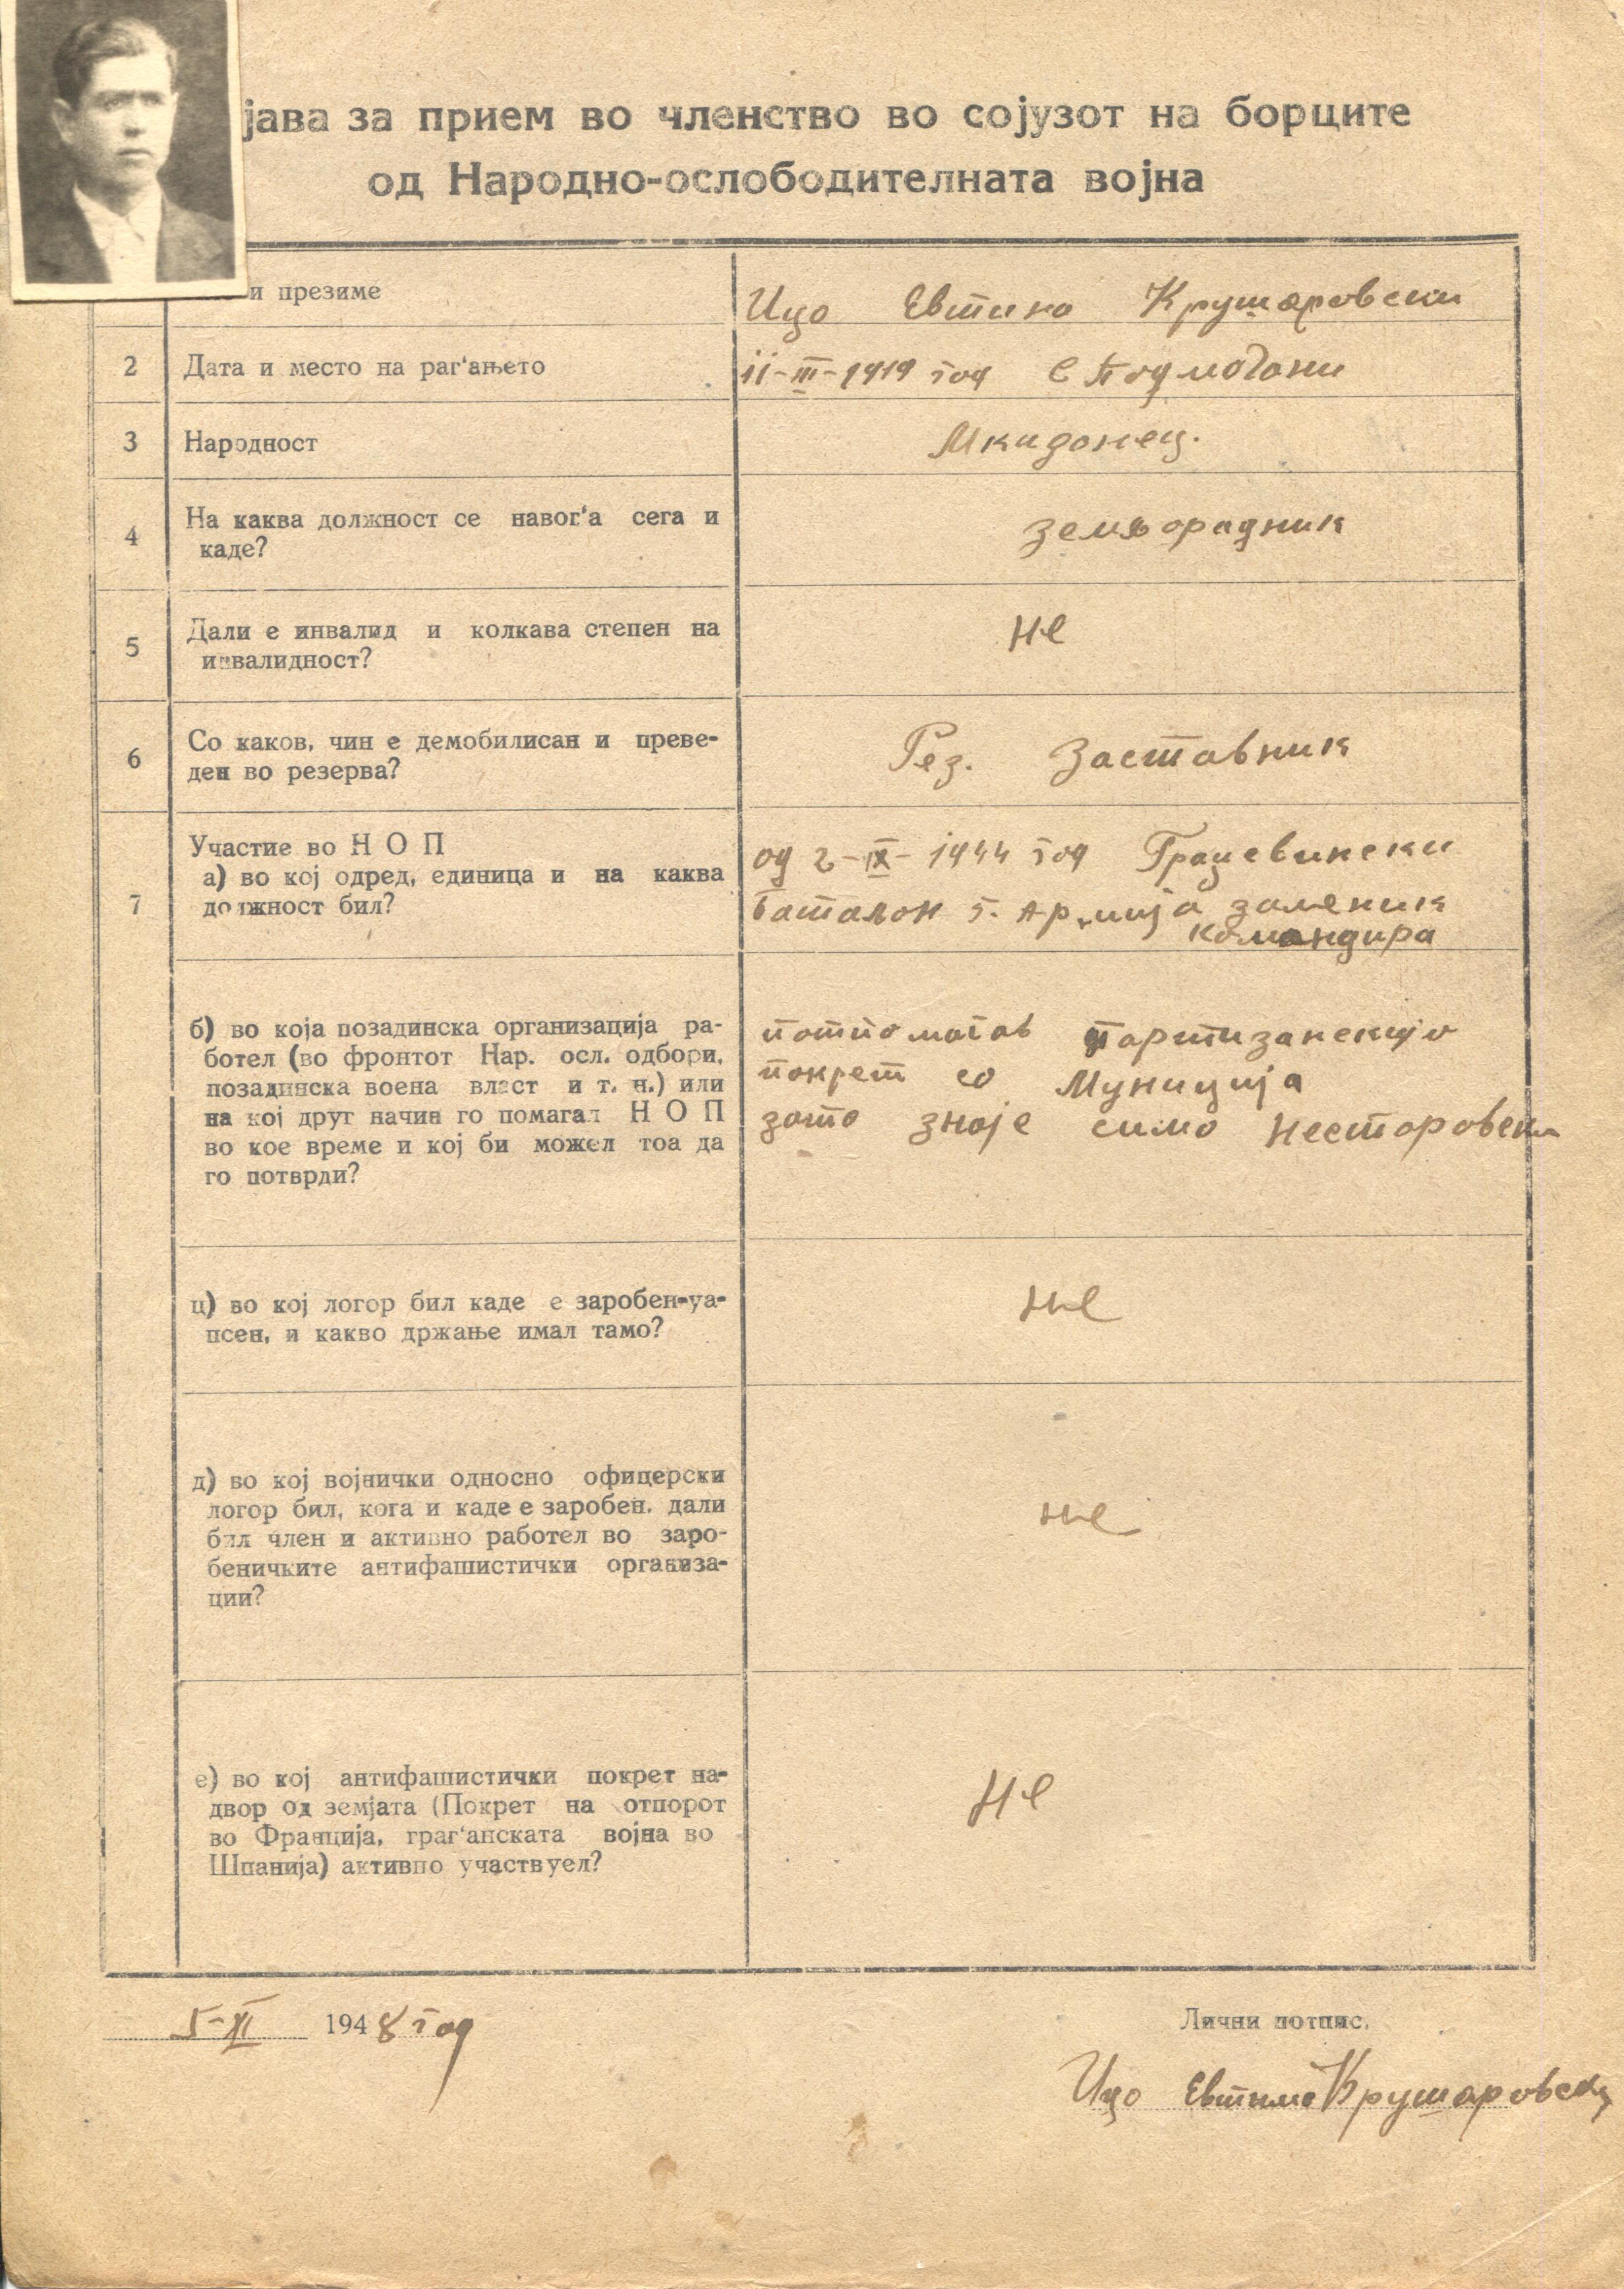 јава за прием во членство во сојузот на борците
од Народно-ослободителната војна
и презиме
Ицо Евтимо Крушаровски
2
Дата и место на раг'ањето
11-III-1919 год с Подмочани
3
Народност
Мкидонец.
4
На каква должност се навог'а сега и
каде?
земјорадник
5
Дали е инвалид и колкава степен на
инвалидност?
не
6
Со каков, чин е демобилисан и преве-
ден во резерва?
Рез. Заставник
7
Участие во Н О П
а) во кој одред, единица и на каква
должност бил?
од 2-IX-1944 год Грацевински
баталон 5. Армија заменик
командира
б) во која позадинска организација ра-
ботел (во фронтот Нар. осл. одбори,
позадинска воена власт и т. н.) или
на кој друг начин го помагал Н О П
во кое време и кој би можел тоа да
го потврди?
потпомагав партизанскијо
покрет со Муниција
зато знаје симо Несторовски
ц) во кој логор бил каде е заробен-уа-
псен, и какво држање имал тамо?
не
д) во кој војнички односно офицерски
логор бил, кога и каде е заробен, дали
бил член и активно работел во заро-
беничките антифашистички организа-
ции?
не
е) во кој антифашистички покрет на-
двор од земјата (Покрет на отпорот
во Франција, граг'анската војна во
Шпанија) активно участвуел?
не
5-XI 1948 год
Лични потпис.
Ицо Евтимо Крушаровски